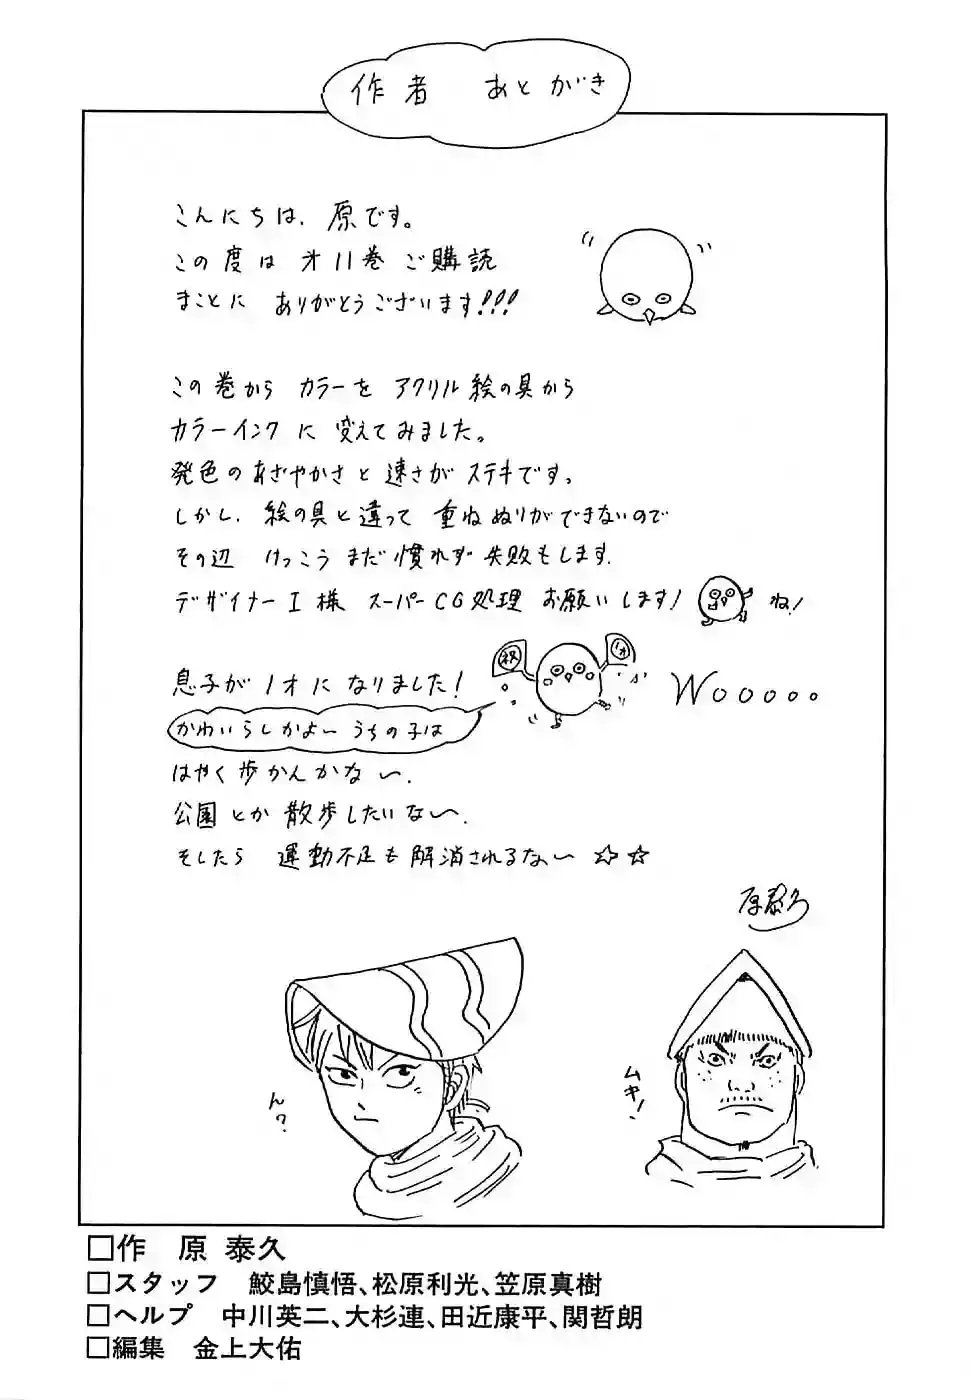 作者 あとがき
こんにちは、原です。
この度は オ11巻 ご購読
まことに ありがとうございます!!!
この巻から カラーを アクリル絵の具から
カラーインク に 変えてみました。
発色のあざやかさと 速さが ステキです。
しかし、絵の具と違って 重ねぬりができないので
その辺 けっこう まだ慣れず 失敗もします.
デザイナーI様 スーパーCG処理 お願いします! ね!
息子が 1才に なりました!
祝
1才
Wooooo
かわいらしかよ〜 うちの子は
はやく歩かんかな〜.
公園とか 散歩したいな〜.
そしたら 運動不足も 解消されるな〜 ☆☆
原泰久
ん?
ムキ!
□作 原 泰久
□スタッフ 鮫島慎悟、松原利光、笠原真樹
□ヘルプ 中川英二、大杉連、田近康平、関哲朗
□編集 金上大佑